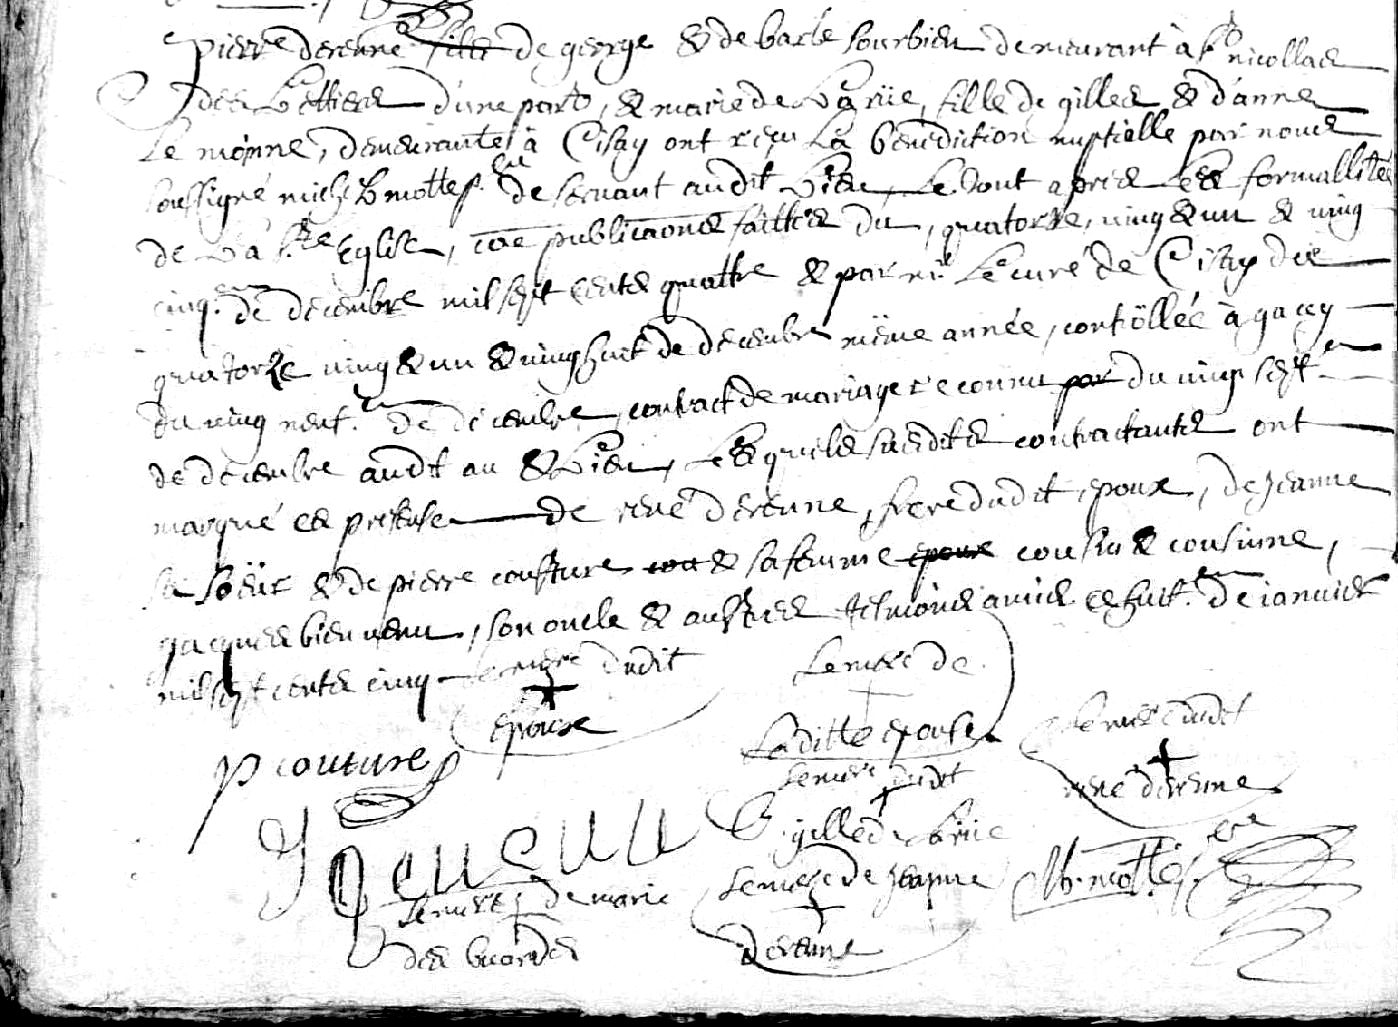 pierre derenne fille de george & de barbe sourbieu demeurant à st nicollas
des Lettiers d'une part, & marie de La rüe, fille de gilles & d'anne
Le moinne, demeurante à Cisay ont reçu La bénédiction nuptialle par nous
soussigné desservant audit Lieu, Le tout après Les formallités
de La ste Eglise, publications faittes du, quatorze, ving & un & ving
cinq de decembre mil sept cents quattre & par mr Le curé de Cisay des
quatorze ving & un & vinghuit de decembre même année, contôllée à gacey
du ving neuf de decembre, contract de mariage reconnu par du ving sept
de decembre audit an & Lieu, Lesquels susdits contractants ont
marqué es présence de rené derenne, frere dudit epoux, de Jeanne
sa sœur & de pierre cousture & sa femme epoux cousin & cousinne,
jacques bienvenu, son oncle & austres tesmoins amis ce huit de ianvier
mil sept cents cinq
Le merc dudit epoux
Le merc de Laditte epouse
Le merc dudit rené derenne
P couture
Le merc dudit gilles de La rüe
Le merc de Jeanne derenne
Le merc de marie des buordes